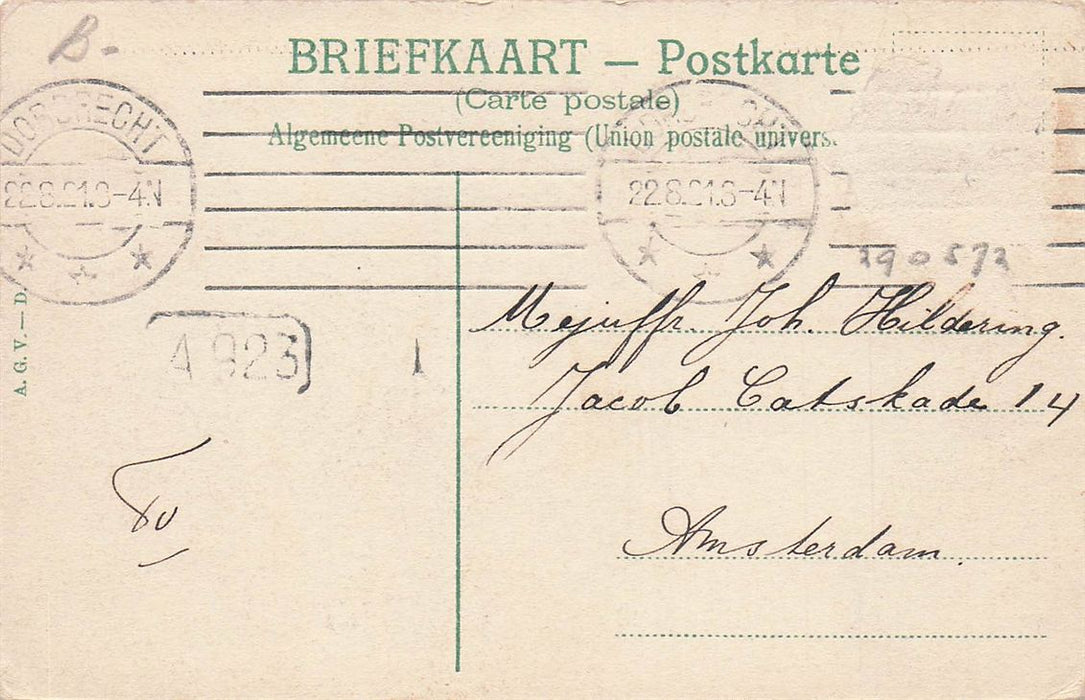 B-
BRIEFKAART — Postkarte
(Carte postale)
Algemeene Postvereeniging (Union postale univers.
DORDRECHT
22.8.21.3-4N
22.8.21.3-4N
290572
A. G. V. — D.
A 923
1
Mejuffr. Joh. Hildering.
Jacob Catskade 14
Amsterdam.